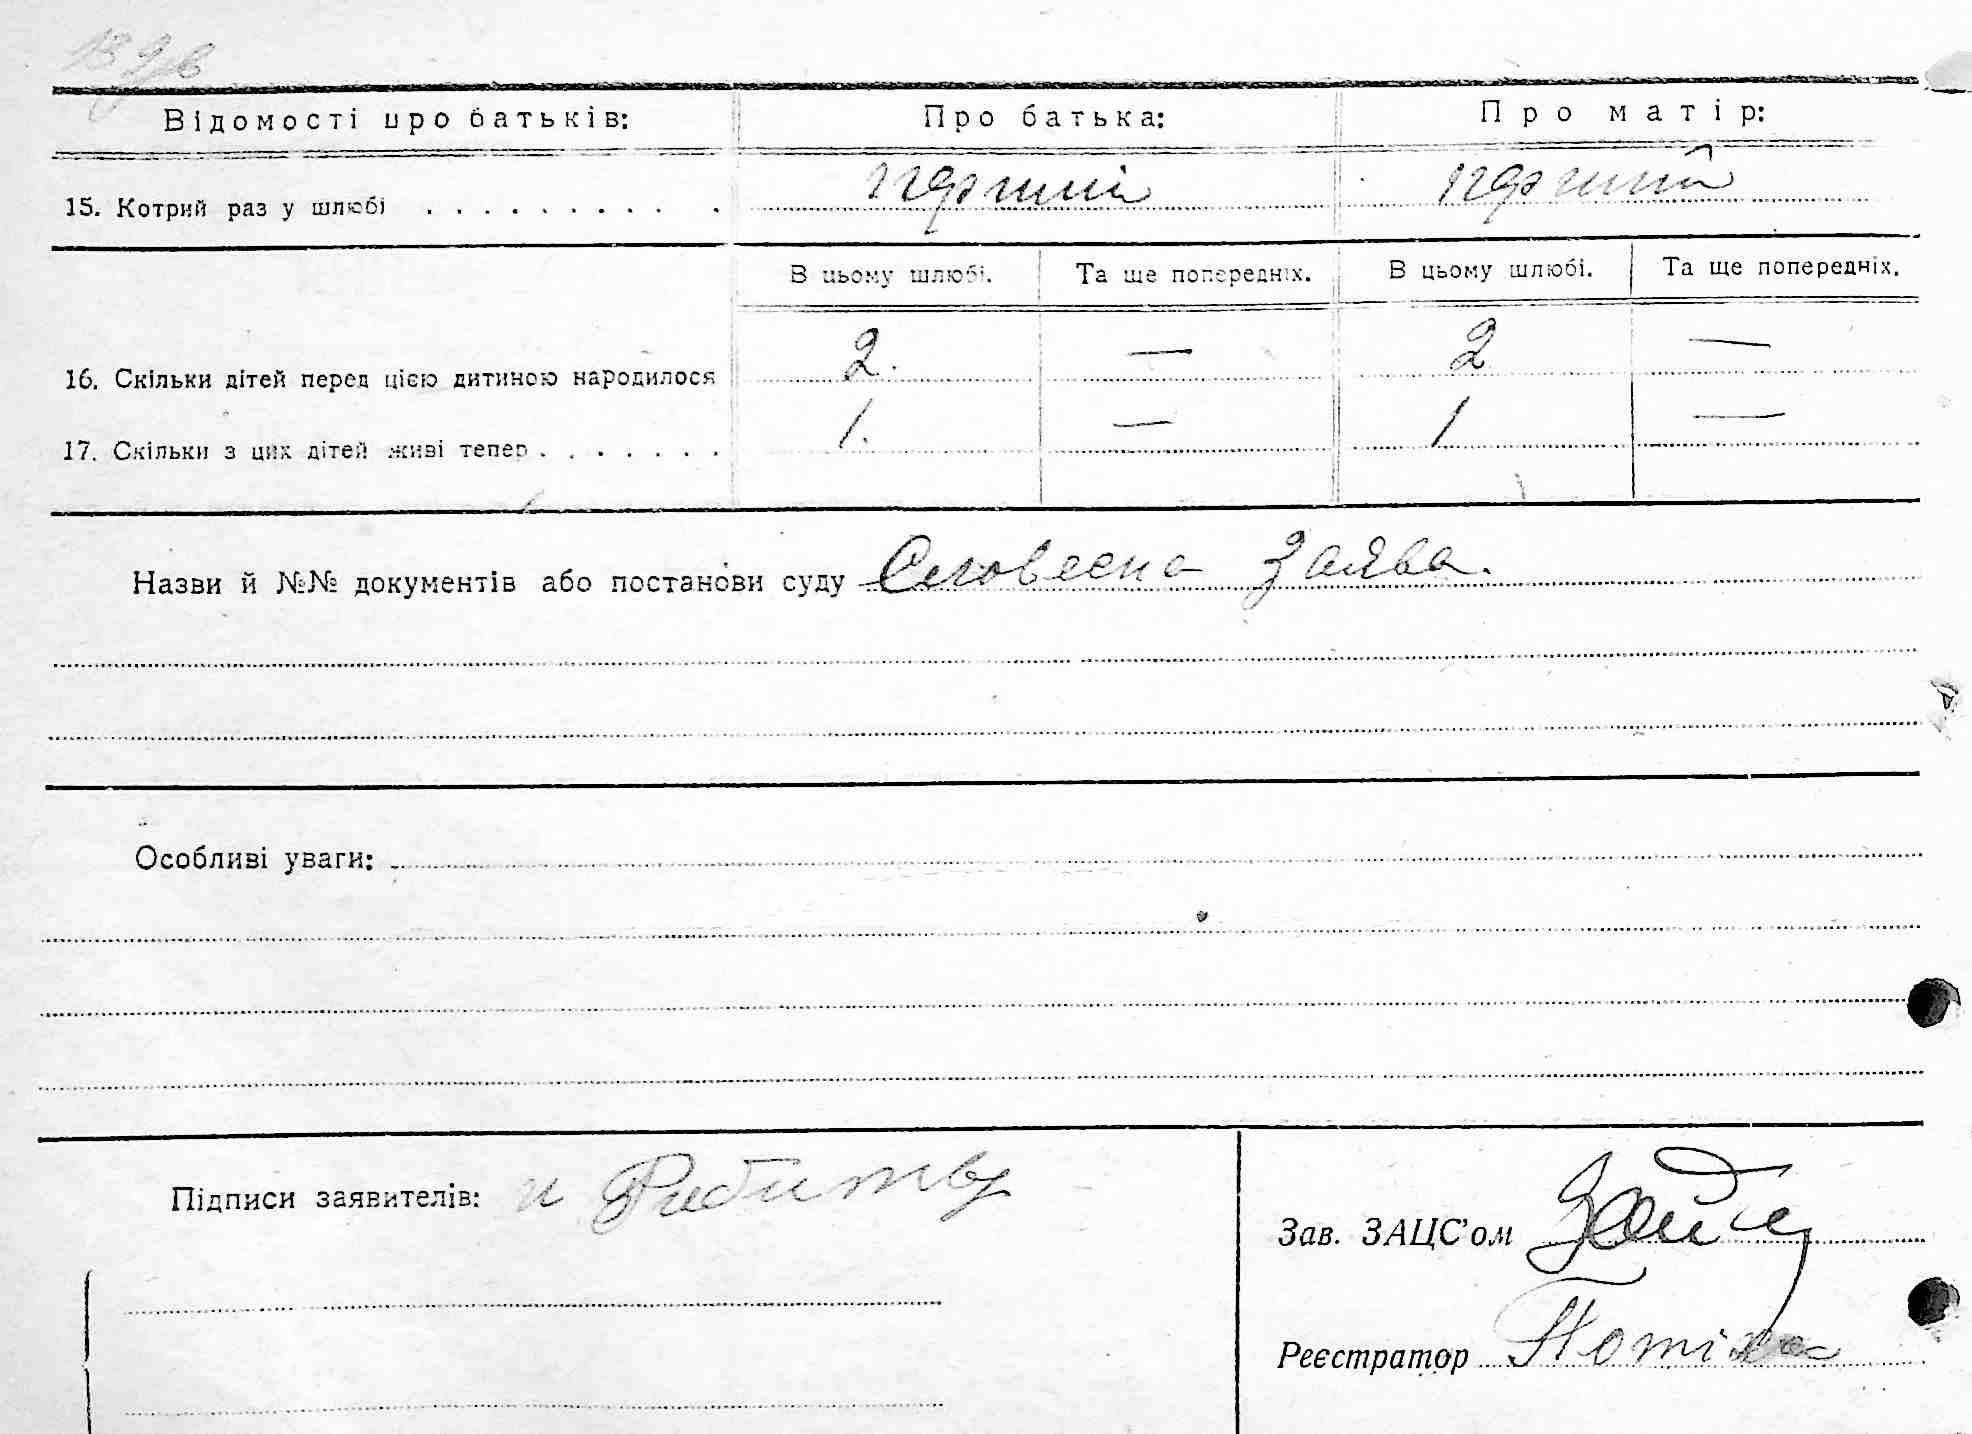 Відомості про батьків: Про батька: Про матір:
15. Котрий раз у шлюбі . . . . . . . . . . перший перший
В цьому шлюбі. Та ще попередніх. В цьому шлюбі. Та ще попередніх.
16. Скільки дітей перед цією дитиною народилося 2. — 2 —
17. Скільки з цих дітей живі тепер . . . . . . . 1. — 1 —
Назви й №№ документів або постанови суду Словесна заява.
Особливі уваги:
Підписи заявителів:
Зав. ЗАЦС'ом
Реєстратор